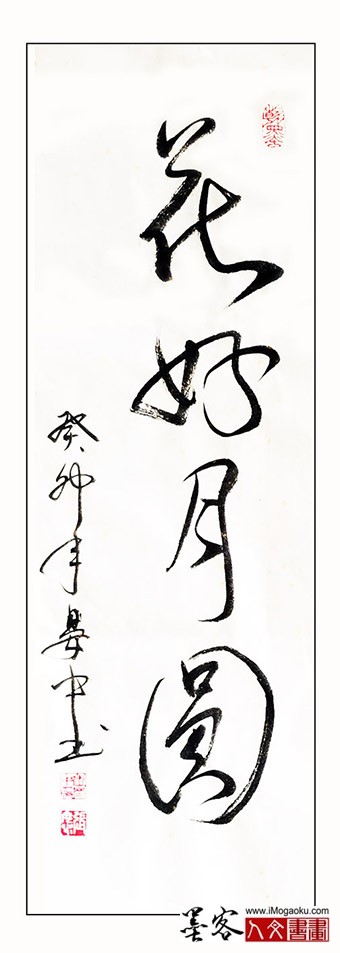 花好月圓
癸卯年晏中书
墨客
www.iMogaoku.com
人文書畫